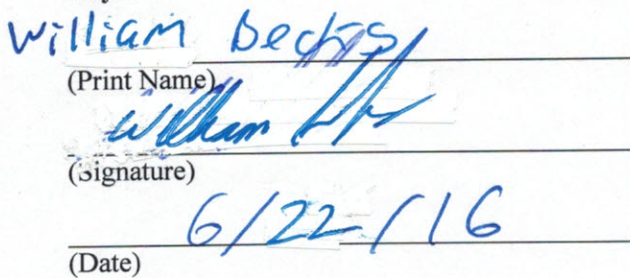 William
(Print Name)
William
(Signature)
6/22/16
(Date)